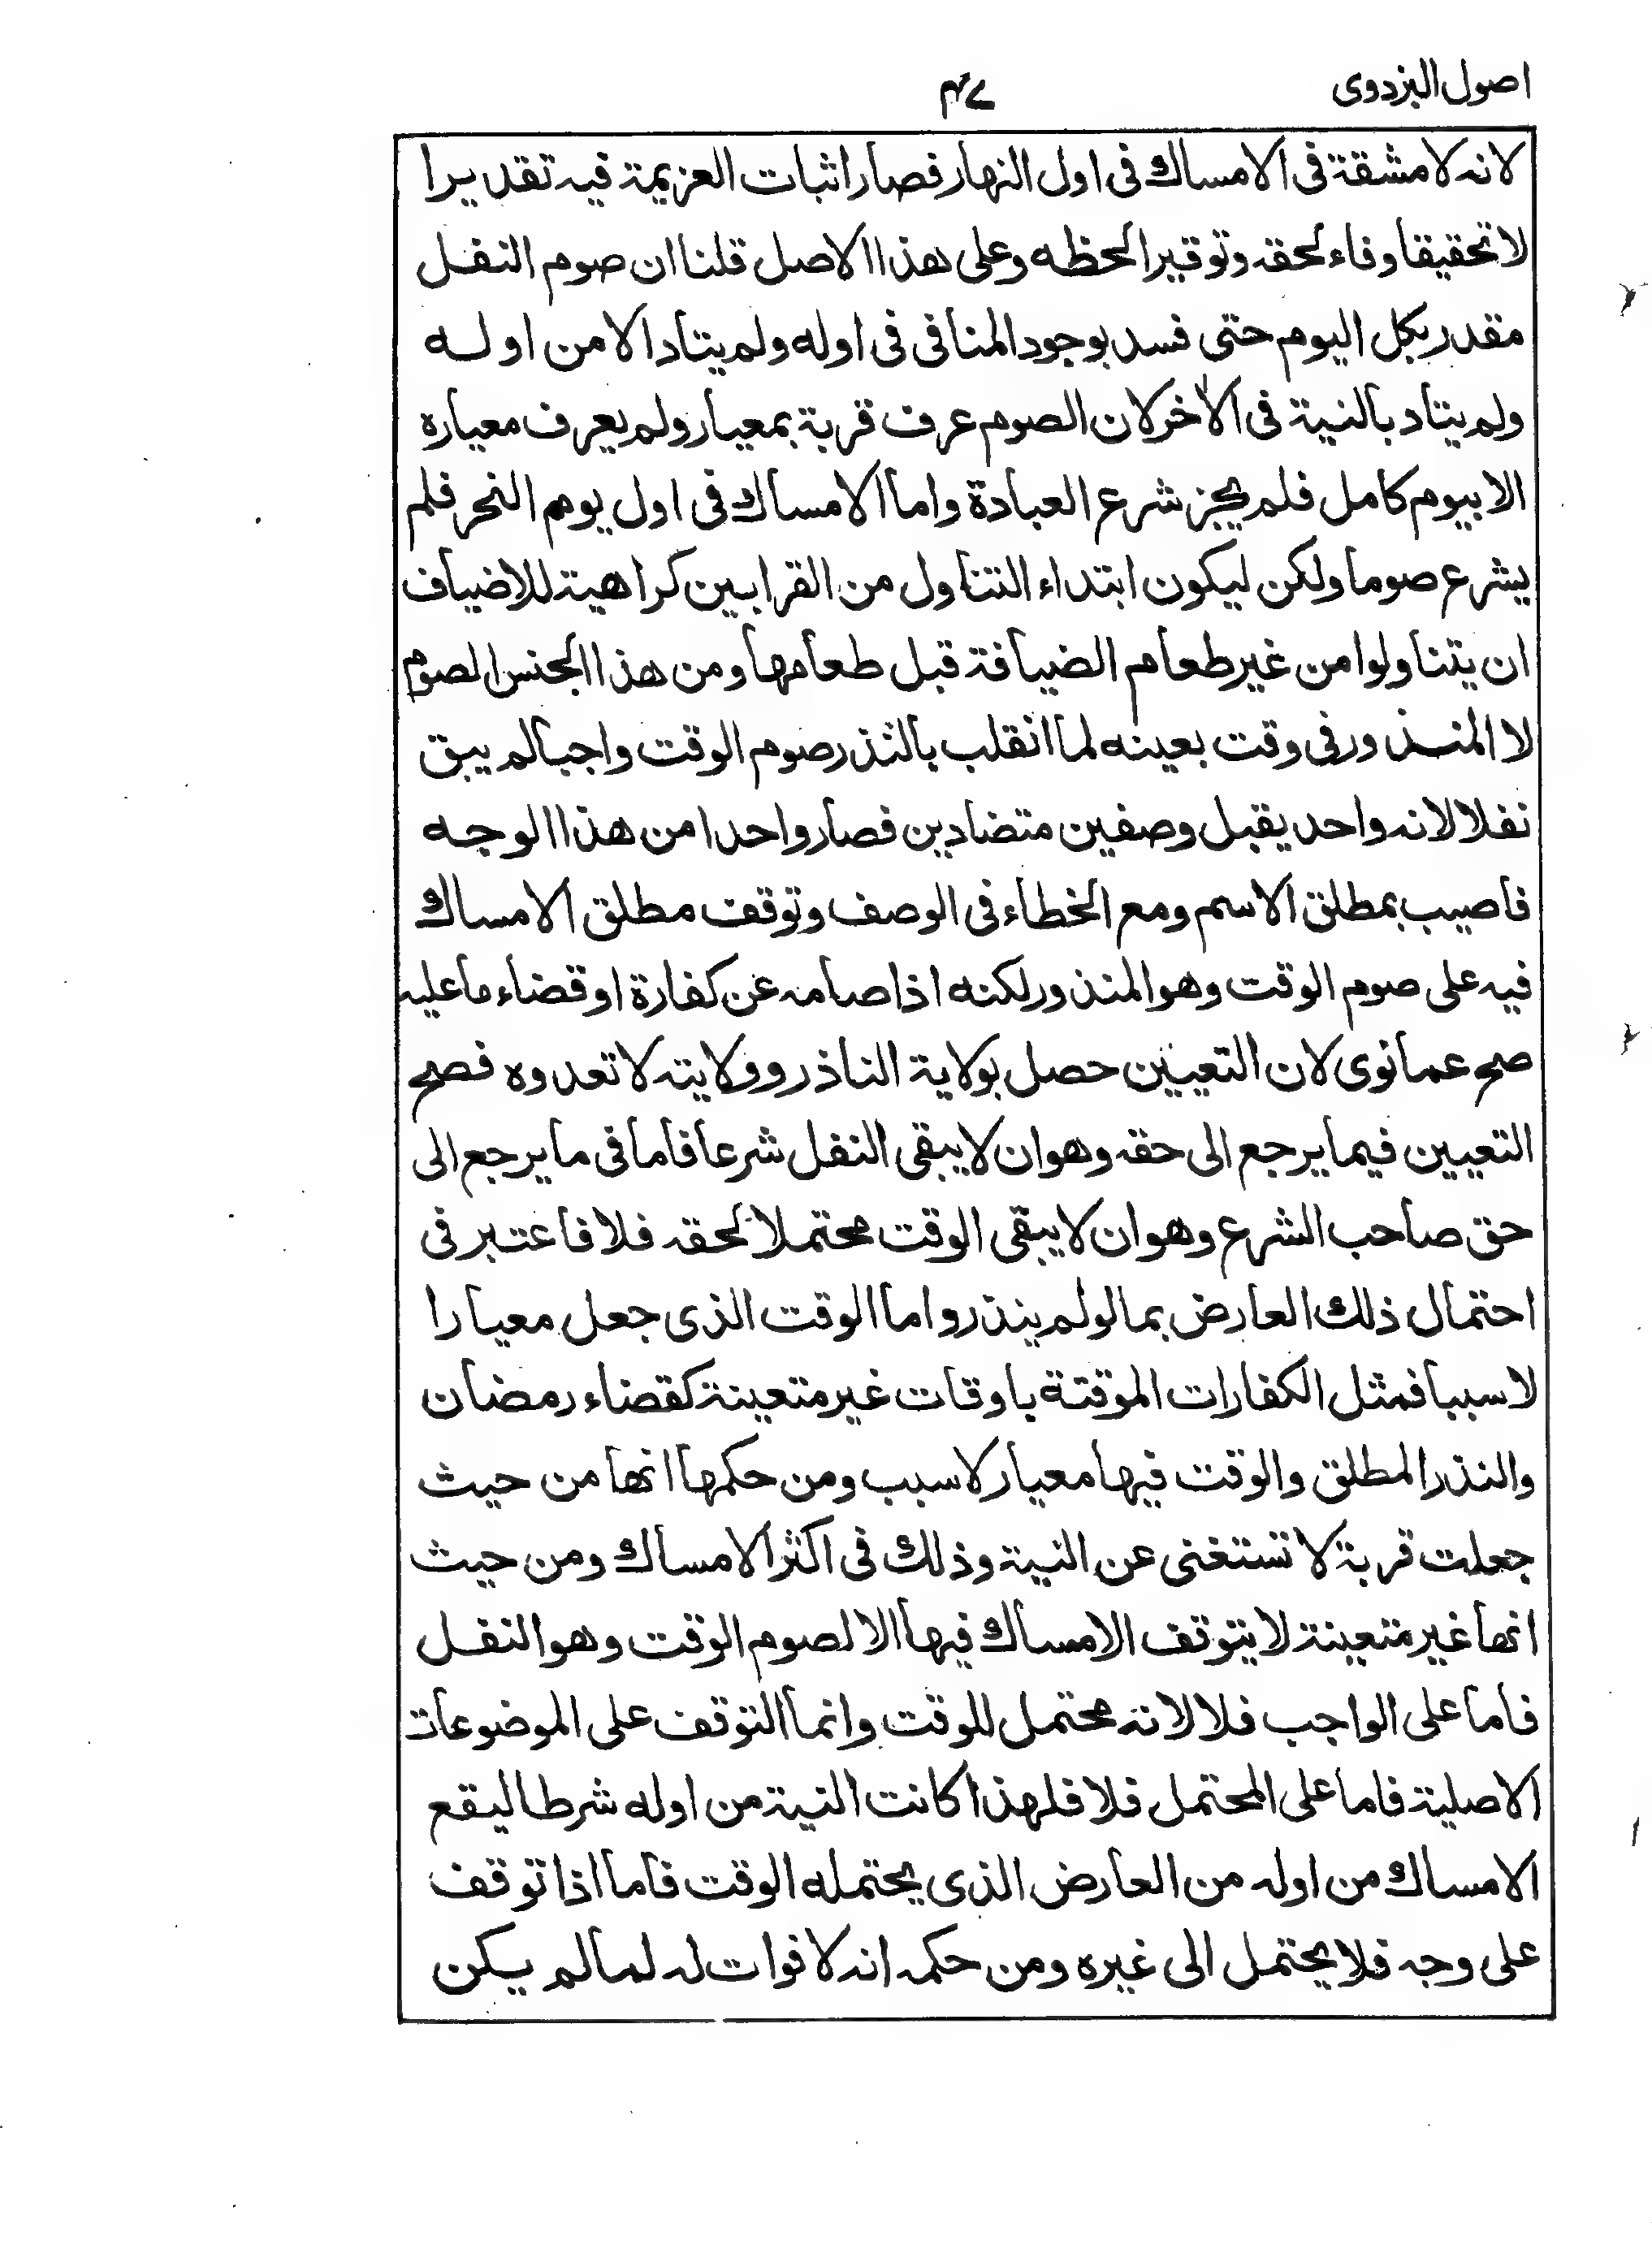 اصول البزدوى
٤٧
لانه لا مشقة فى الامساك فى اول النهار فصار اثبات العزيمة فيه تقديرا
لا تحقيقا وفاء لحقه وتوقيرا لحظه وعلى هذا الاصل قلنا ان صوم النفل
مقدر بكل اليوم حتى فسد بوجود المنافى فى اوله ولم يتاد الا من اوله
ولم يتاد بالنية فى الأخر لان الصوم عرف قربة بمعيار ولم يعرف معياره
الا بيوم كامل فلم يجز شرع العبادة واما الامساك فى اول يوم النحر فلم
يشرع صوما ولكن ليكون ابتداء التناول من القرابين كراهية للاضياف
ان يتناولوا من غير طعام الضيافة قبل طعامها ومن هذا الجنس الصوم
لا المنذور فى وقت بعينه لما انقلب بالنذر صوم الوقت واجبا لم يبق
نفلا لانه واحد يقبل وصفين متضادين فصار واحدا من هذا الوجه
فاصيب بمطلق الاسم ومع الخطاء فى الوصف وتوقف مطلق الامساك
فيه على صوم الوقت وهو المنذور لكنه اذا صامه عن كفارة او قضاء ما عليه
صح عما نوى لان التعيين حصل بولاية الناذر وولايته لا تعدوه فصح
التعيين فيما يرجع الى حقه وهو ان لا يبقى النفل شرعا فاما فى ما يرجع الى
حق صاحب الشرع وهو ان لا يبقى الوقت محتملا لحقه فلا فاعتبر فى
احتمال ذلك العارض بما لو لم ينذر واما الوقت الذى جعل معيارا
لا سببا فمثل الكفارات الموقتة باوقات غير متعينة كقضاء رمضان
والنذر المطلق والوقت فيها معيار لا سبب ومن حكمها انها من حيث
جعلت قربة لا تستغنى عن النية وذلك فى اكثر الامساك ومن حيث
انها غير متعينة لا يتوقف الامساك فيها الا لصوم الوقت وهو النفل
فاما على الواجب فلا لانه محتمل للوقت وانما التوقف على الموضوعات
الاصلية فاما على المحتمل فلا فلهذا كانت النية من اوله شرطا ليقع
الامساك من اوله من العارض الذى يحتمله الوقت فاما اذا توقف
على وجه فلا يحتمل الى غيره ومن حكمه انه لا فوات له لما لم يكن